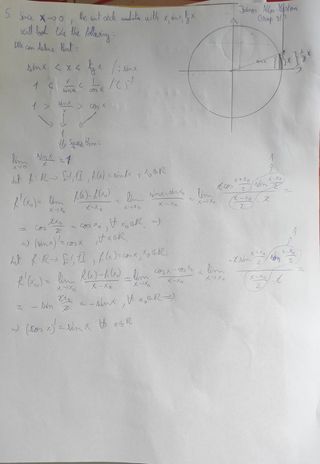 5. Since x→0, the unit circle module with x, sin x, tg x
will look like the following:
We can deduce that:
sin x < x < tg x /: sin x
1 < x/sin x < 1/cos x /( )⁻¹
1 > sin x/x > cos x
↓ ↓ ↓
1
lim x→0 sin x/x = 1
Let f: R → [-1, 1], f(x) = sin x, x₀∈R
f'(x₀) = lim x→x₀ (f(x)-f(x₀))/(x-x₀) = lim x→x₀ (sin x - sin x₀)/(x-x₀) = lim x→x₀ (2 cos (x+x₀)/2 sin (x-x₀)/2)/((x-x₀)/2 · 2) =
= cos 2x₀/2 = cos x₀, ∀ x₀∈R ⇒
⇒ (sin x)' = cos x, ∀ x∈R
Let f: R → [-1, 1], f(x) = cos x, x₀∈R
f'(x₀) = lim x→x₀ (f(x)-f(x₀))/(x-x₀) = lim x→x₀ (cos x - cos x₀)/(x-x₀) = lim x→x₀ (-2 sin (x+x₀)/2 sin (x-x₀)/2)/((x-x₀)/2 · 2) =
= - sin 2x₀/2 = - sin x₀, ∀ x₀∈R ⇒
⇒ (cos x)' = sin x ∀ x∈R